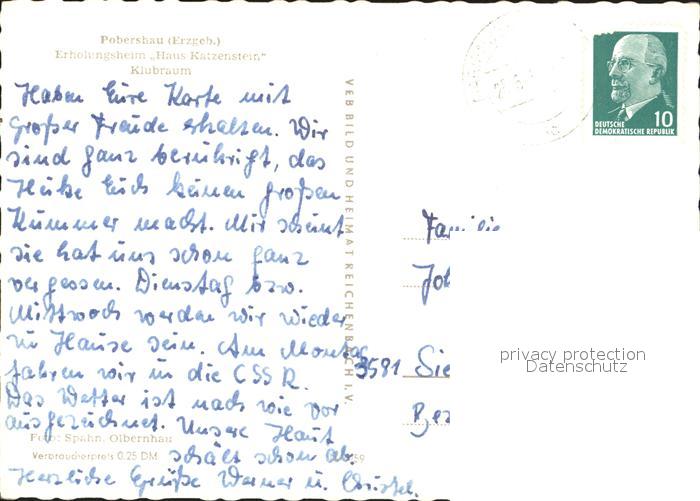 Pobershau (Erzgeb.)
Erholungsheim „Haus Katzenstein“
Klubraum
Haben Eure Karte mit
großer Freude erhalten. Wir
sind ganz beruhigt, das
Heike Euch keinen großen
Kummer macht. Mir scheint
sie hat uns schon ganz
vergessen. Dienstag bzw.
Mittwoch werden wir wieder
zu Hause sein. Am Montag
fahren wir in die CSSR.
Das Wetter ist nach wie vor
ausgezeichnet. Unsere Haut
schält schon ab.
Herzliche Grüße Werner u. Christel.
Foto: Spahn, Olbernhau
Verbraucherpreis 0.25 DM
VEB BILD UND HEIMAT REICHENBACH I. V.
DEUTSCHE
DEMOKRATISCHE REPUBLIK
10
Familie
Joh
3581 Sie
Bez
privacy protection
Datenschutz